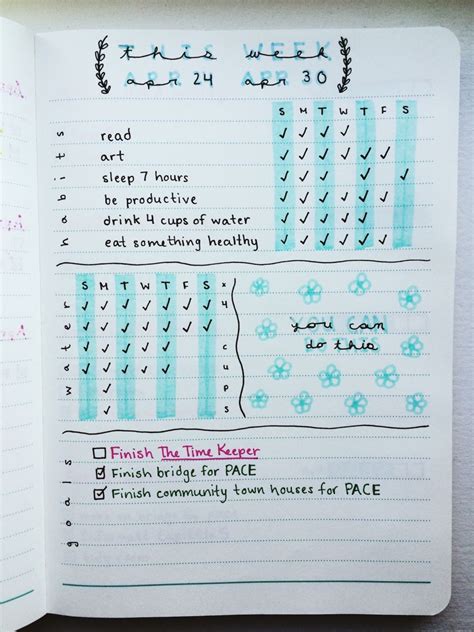 THIS WEEK
this week
APR 24 APR 30
apr 24 apr 30
S M T W T F S
habits
read
art
sleep 7 hours
be productive
drink 4 cups of water
eat something healthy
S M T W T F S
water
x 4 cups
YOU CAN
you can
do this
goals
Finish The Time Keeper
Finish bridge for PACE
Finish community town houses for PACE